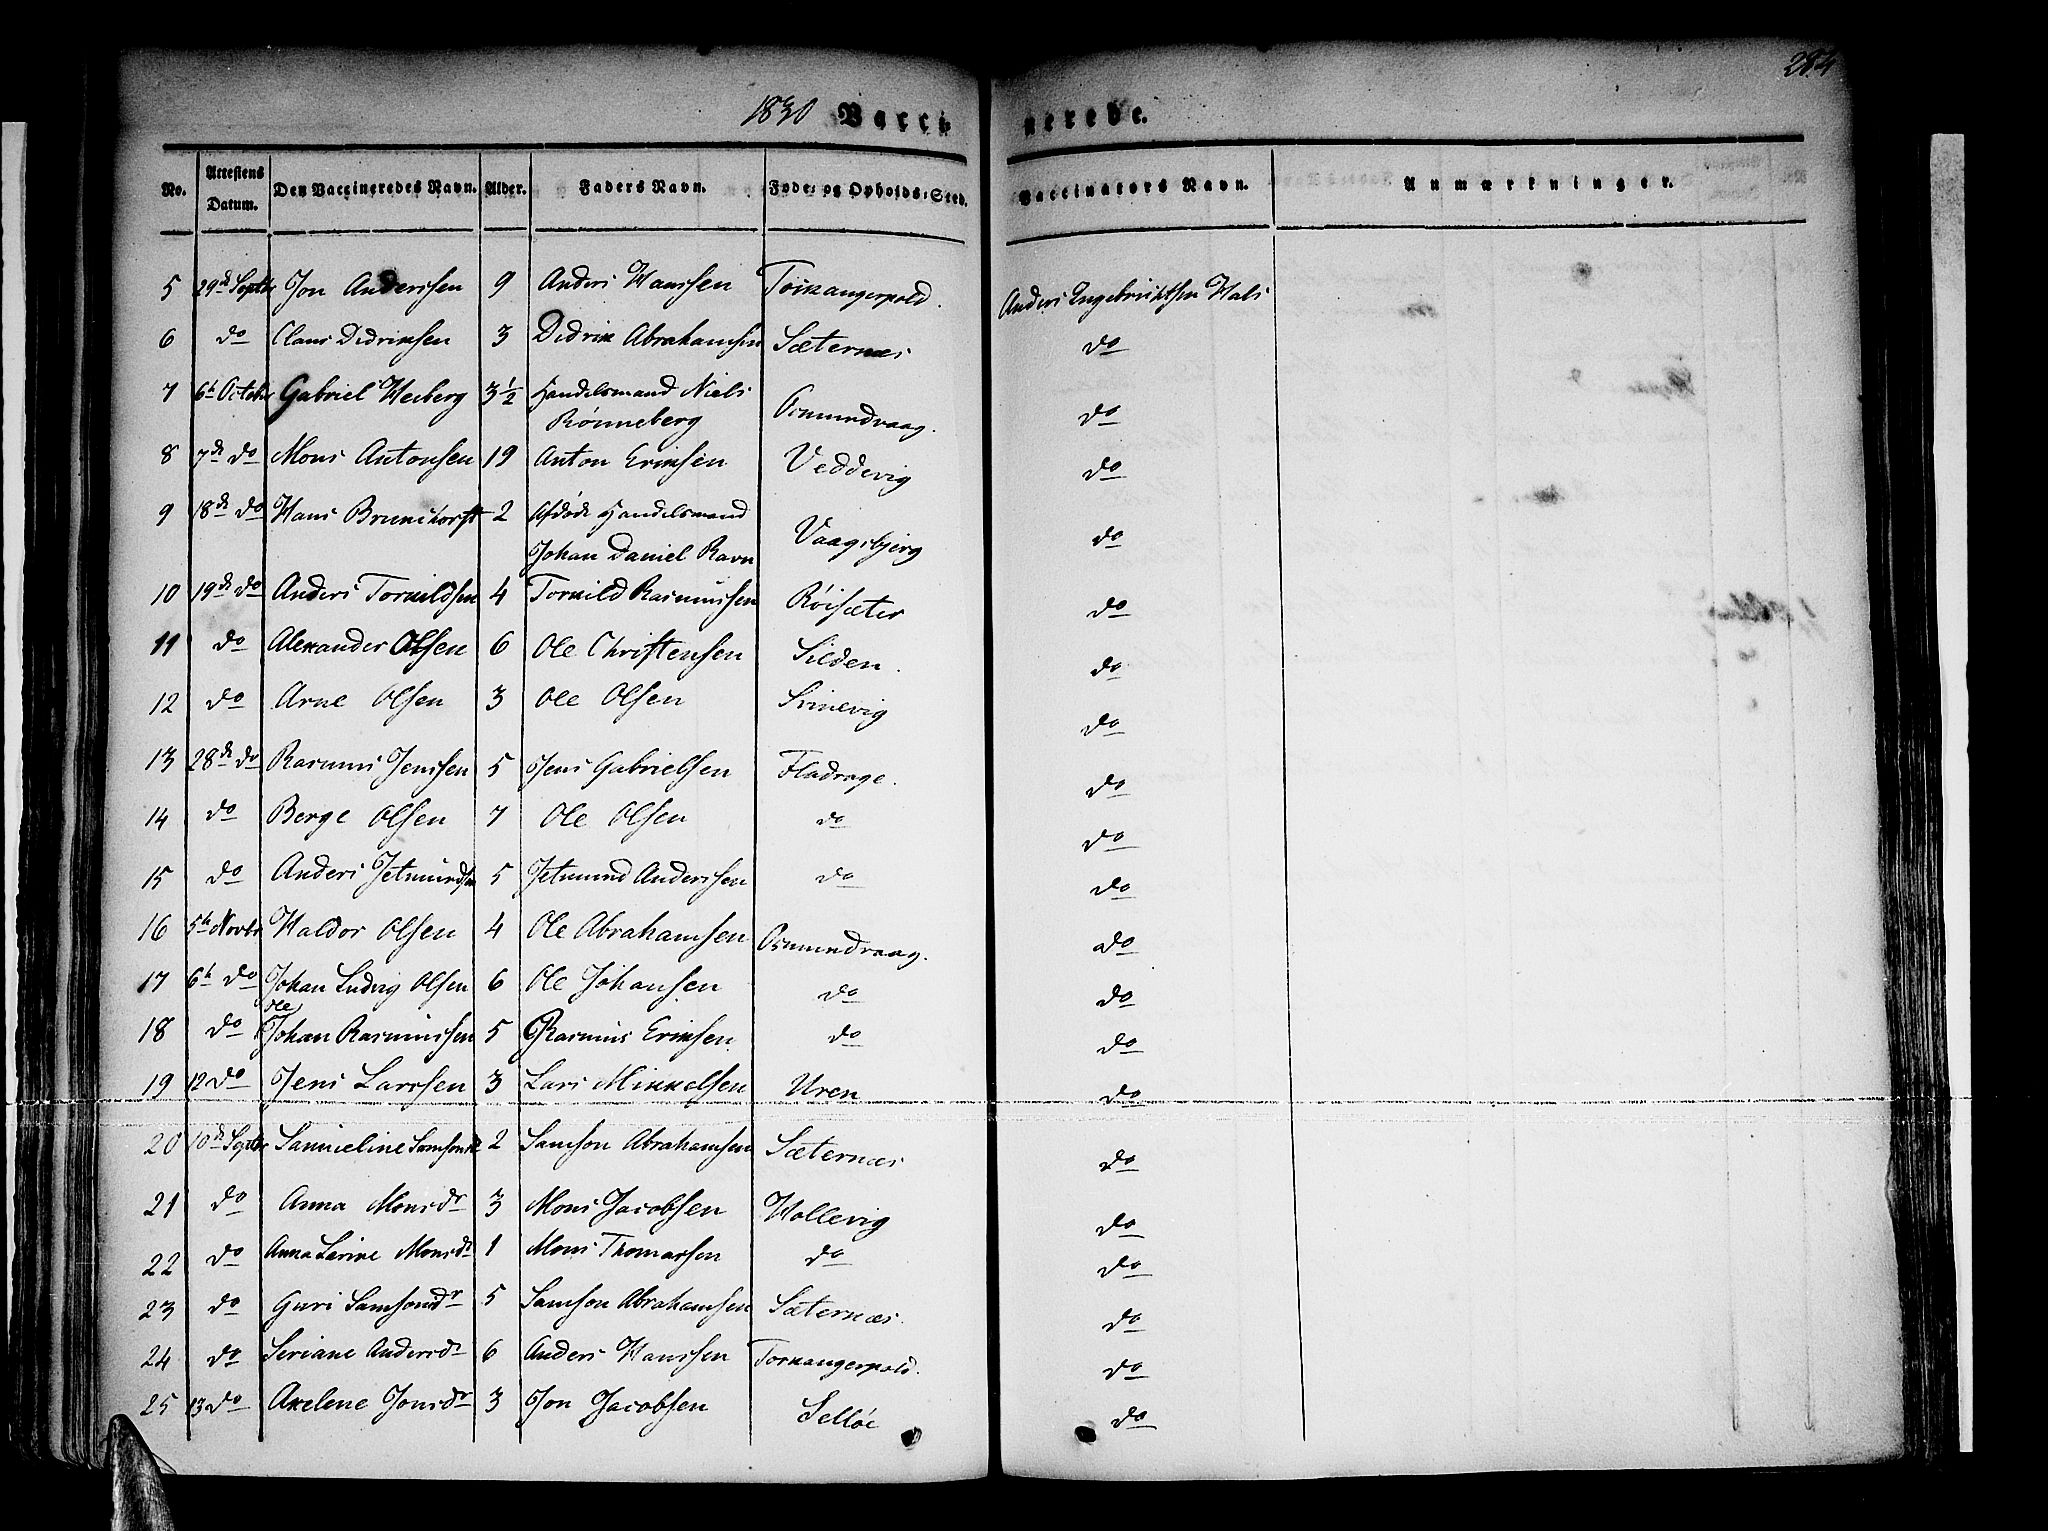 284
1830 Vaccinerede.
No. Attestens Datum. Den Vaccineredes Navn. Alder. Faders Navn. Føde- og Opholds-Sted. Vaccinators Navn. Anmærkninger.
5 29de Septbr Jon Anderssen 9 Anders Hanssen Anders Engebrichtsen Hals
6 do Claus Didriksen 3 Didrik Abrahamsen Sæternæs do
7 6te Octobr Gabriel Heiberg 3½ Handelsmand Niels
Rønneberg Osmundvaag. do
8 7de do Mons Antonsen 19 Anton Eriksen Veddevig do
9 18de do Hans Brunchorst 2 Afdøde Handelsmand
Johan Daniel Ravn Vaagsbjerg do
10 19de do Anders Torkildsen 4 Torkild Rasmussen Røisæter do
11 do Alexander Olsen 6 Ole Christensen Silden. do
12 do Arne Olsen 3 Ole Olsen do
13 28de do Rasmus Jenssen 5 Jens Gabrielsen do
14 do Berge Olsen 7 Ole Olsen do do
15 do Anders Jetmundsen 5 Jetmund Anderssen do do
16 5te Novbr Haldor Olsen 4 Ole Abrahamsen Osmundvaag. do
17 6te do Johan Ludvig Olsen 6 Ole Johansen do do
18 do Ole Johan Rasmussen 5 Rasmus Eriksen. do do
19 12 do Jens Larssen 3 Lars Mikkelsen Uren do
20 10de Septbr Samueline Samsonsdr 2 Samson Abrahamsen Sæternæs do
21 do Anna Monsdr 3 Mons Jacobsen Hollevig do
22 do Anna Serine Monsdr 1 Mons Thomassen do do
23 do Guri Samsonsdr 5 Samson Abrahamsen Sæternæs. do
24 do Seriane Andersdr 6 Anders Hanssen Torkangerpold. do
25 13 do Axelene Jonsdr 3 Jon Jacobsen Selløe do